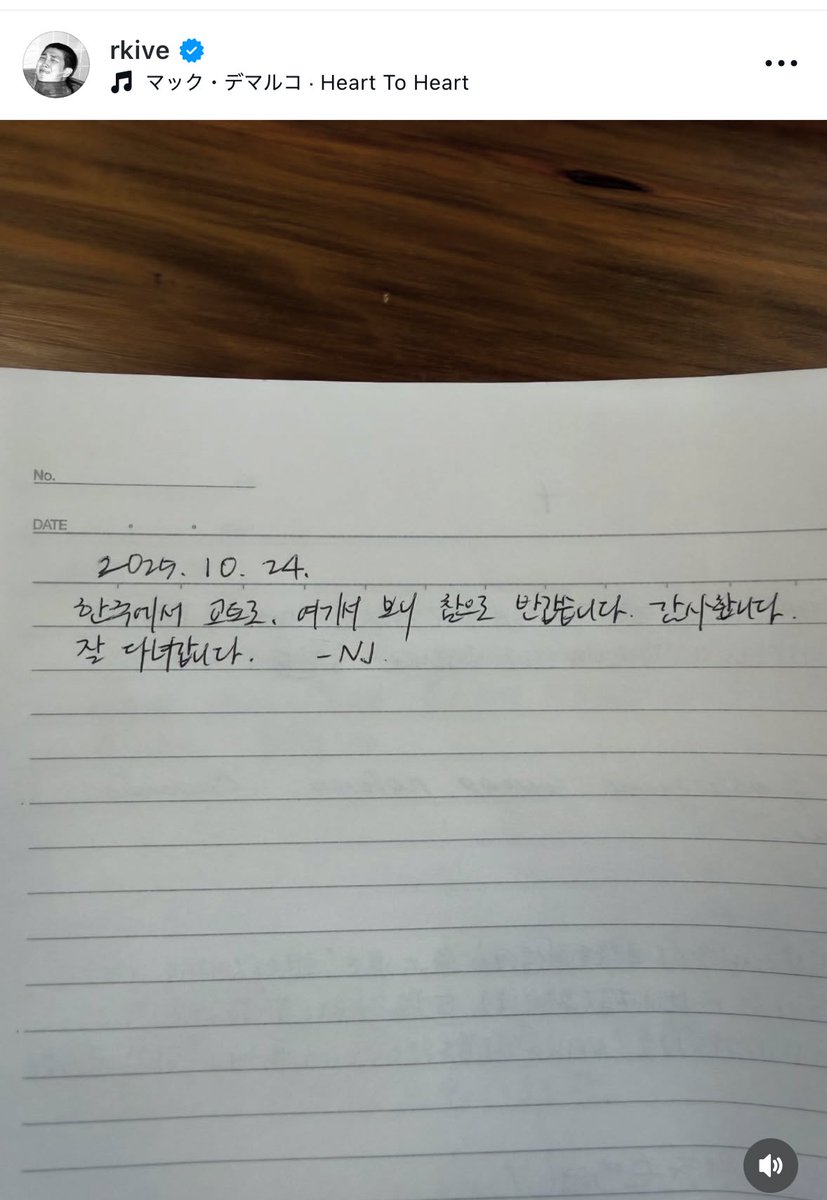 rkive
マック・デマルコ · Heart To Heart
No.
DATE
2025. 10. 24.
한국에서 교토로, 여기서 보니 참으로 반갑습니다. 감사합니다.
잘 다녀갑니다. -NJ.